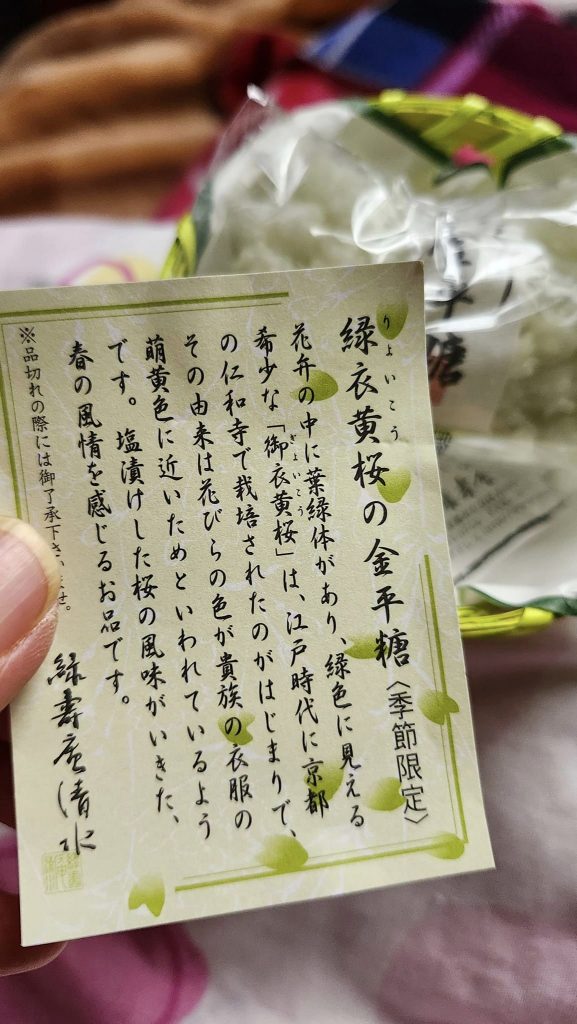 りょいこう
緑衣黄桜の金平糖〈季節限定〉
花弁の中に葉緑体があり、緑色に見える
ぎょいこう
希少な「御衣黄桜」は、江戸時代に京都
の仁和寺で栽培されたのがはじまりで、
その由来は花びらの色が貴族の衣服の
萌黄色に近いためといわれているよう
です。塩漬けした桜の風味がいきた、
春の風情を感じるお品です。
※品切れの際には御了承下さいませ。
緑壽庵清水
平糖